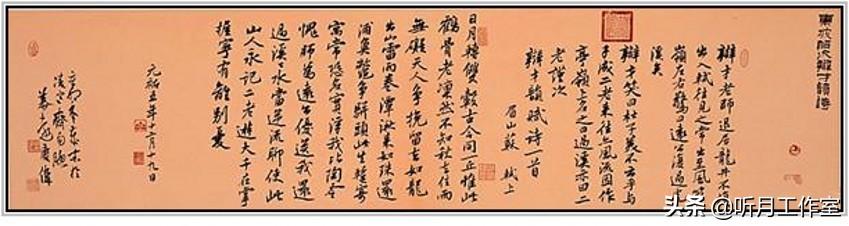 辯才老師退居龍井不復
出入軾往見之常出至風篁
嶺左右驚曰遠公復過虎
溪矣
辯才笑曰杜子美不云乎與
子成二老來往亦風流因作
亭嶺上名之曰過溪亦曰二
老謹次
辯才韻賦詩一首
眉山蘇軾上
日月轉雙轂古今同一丘惟此
鶴骨老凜然不知秋去住兩
無礙天人爭挽留去如龍
出山雷雨卷潭湫來如珠還
浦魚鱉爭駢頭此生暫寄
寓常恐名實浮我比陶令
愧師為遠公優送我還
過溪=水當逆流聊使此
山人永記二老遊大千在掌
握寧有離別憂
元祐五年十二月十九日
头条 @听月工作室